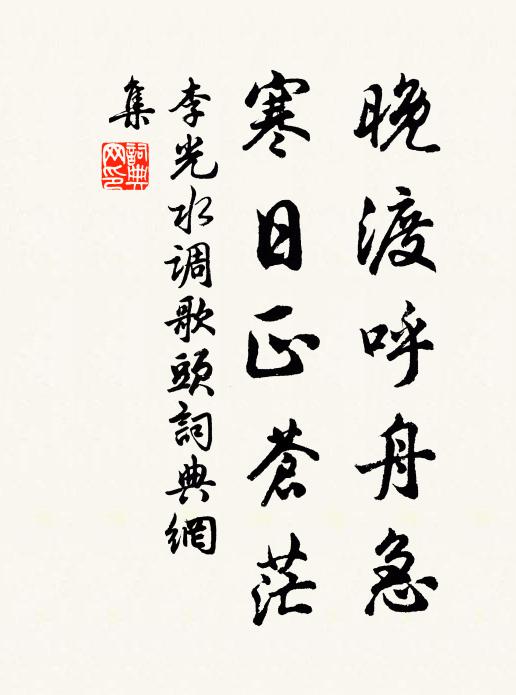 晚渡呼舟急
寒日正蒼茫
李光水调歌頭詞典網
集
詞典網印